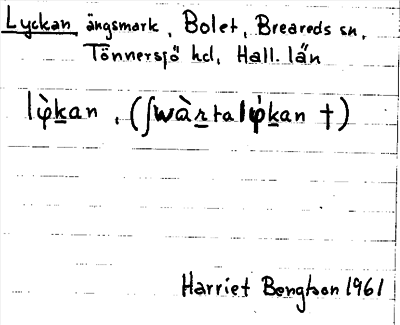 Lyckan ängsmark, Bolet, Breareds sn,
Tönnersjö hd, Hall. län
lφ̀kan, (ʃwàrtalφ̀kan †)
Harriet Bengtson 1961